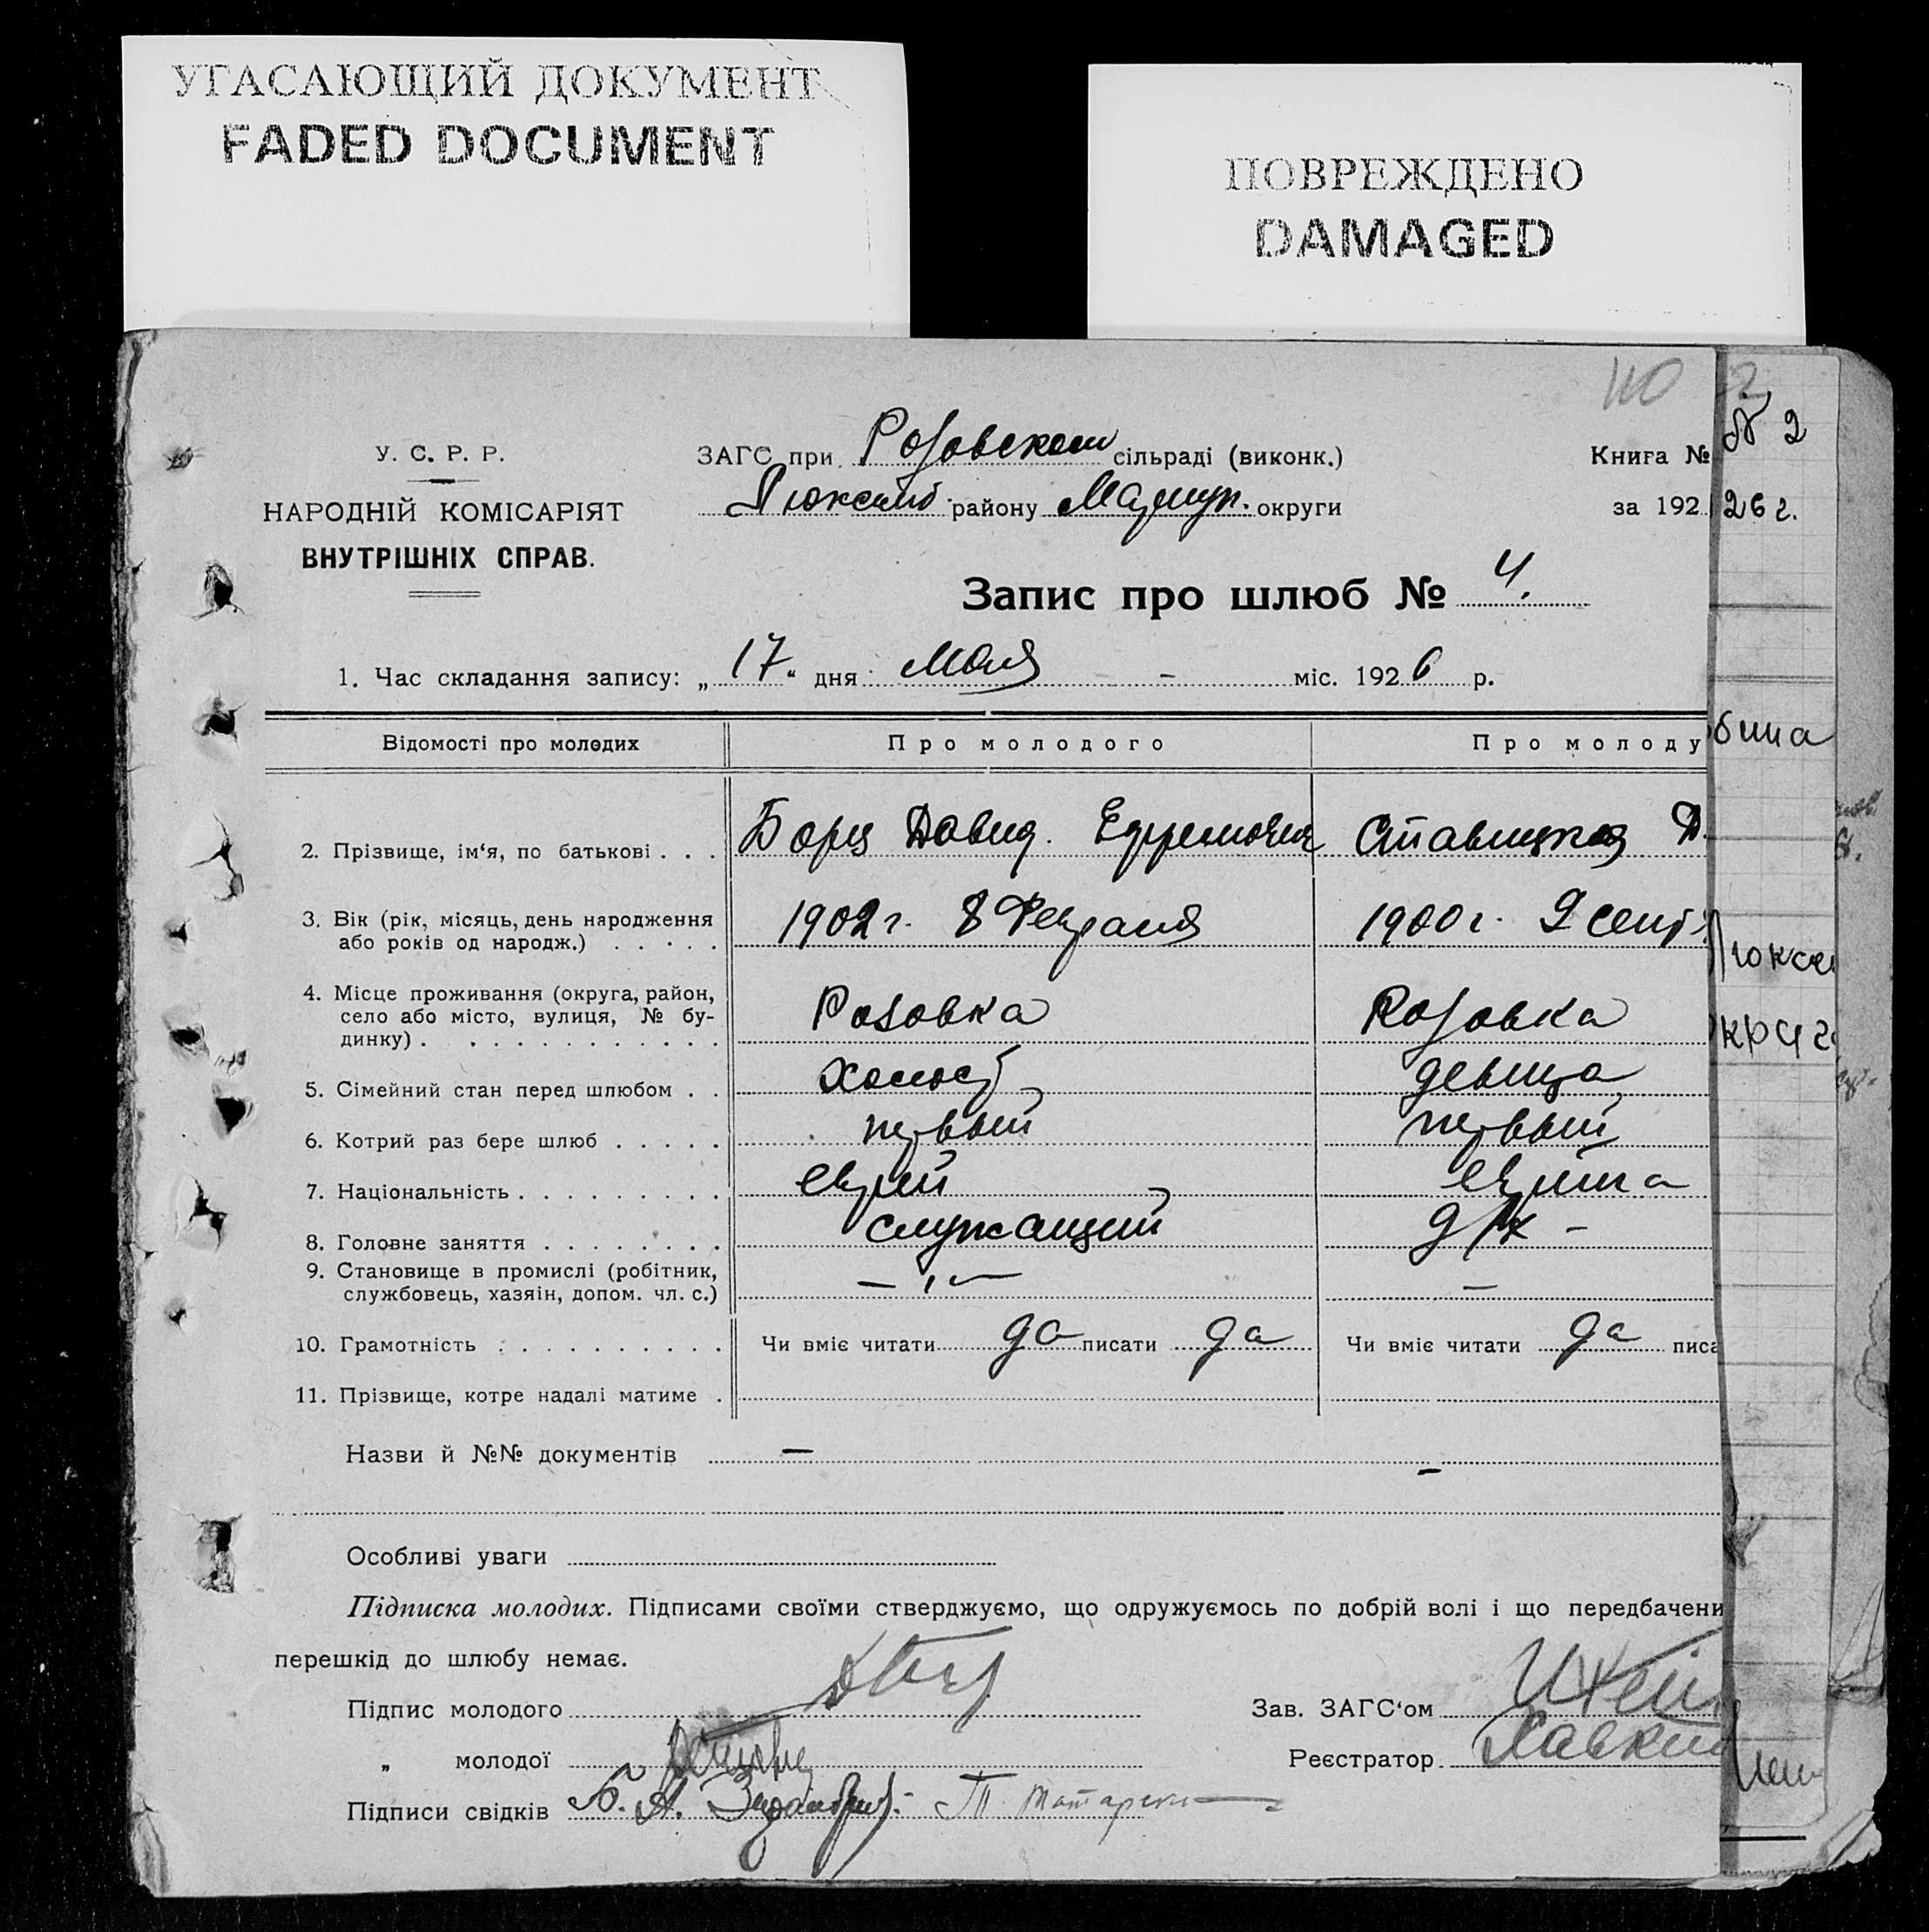 УГАСАЮЩИЙ ДОКУМЕНТ
FADED DOCUMENT
ПОВРЕЖДЕНО
DAMAGED
У. С. Р. Р.
НАРОДНІЙ КОМІСАРІЯТ
ВНУТРІШНІХ СПРАВ.
110
ЗАГС при Розовском сільраді (виконк.)
Люксемб. району Мариуп. округи
Книга № № 2
за 192 26 г.
Запис про шлюб № 4.
1. Час складання запису: „ 17 “ дня мая - міс. 1926 р.
Відомості про молодих Про молодого Про молоду
2. Прізвище, ім‘я, по батькові . . . Борц Давид. Ефремович Ставицкая
3. Вік (рік, місяць, день народження 1902 г. 8 Февраля 1900 г. 2 сент
або років од народж.) . . . . .
4. Місце проживання (округа, район,
село або місто, вулиця, № бу- Розовка Розовка
динку) . . . . . . . . . . . . .
5. Сімейний стан перед шлюбом . . холост девица
6. Котрий раз бере шлюб . . . . . первый первый
7. Національність . . . . . . . . . еврей еврейка
8. Головне заняття . . . . . . . . служащий д/х -
9. Становище в промислі (робітник,
службовець, хазяін, допом. чл. с.) — " — —
10. Грамотність . . . . . . . . . . Чи вміє читати да писати да Чи вміє читати да писа
11. Прізвище, котре надалі матиме .
Назви й №№ документів — —
Особливі уваги
Підписка молодих. Підписами своїми стверджуємо, що одружуємось по добрій волі і що передбачени
перешкід до шлюбу немає.
Підпис молодого Зав. ЗАГС‘ом
„ молодої Реєстратор Хавкин
Підписи свідків Б. А. Т. Татарски
бина
Люксе